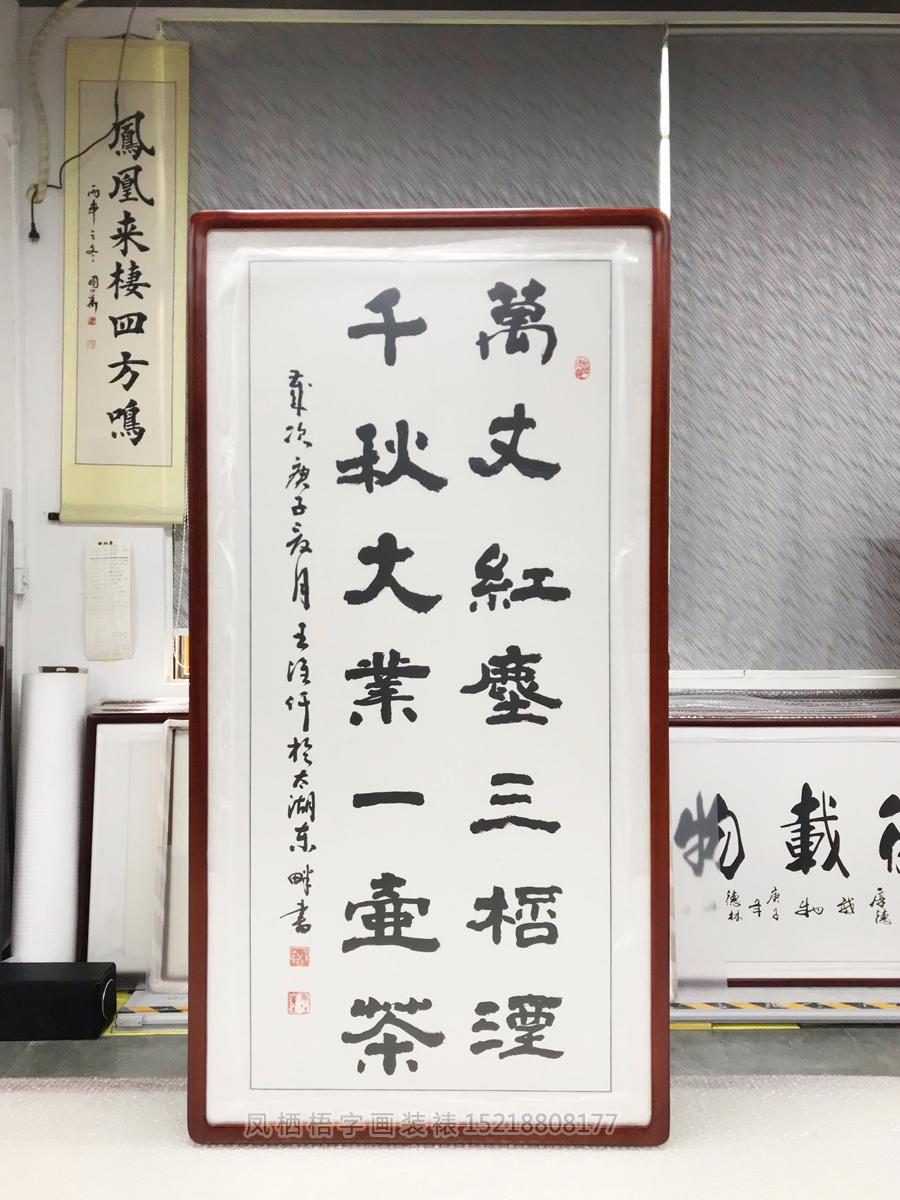 鳳凰来棲四方鳴
萬丈紅塵三桮酒
千秋大業一壺茶
歲次庚子夏月王於太湖东畔書
載物
厚德
載
物
庚子
年
德林
凤栖梧字画装裱15218808177